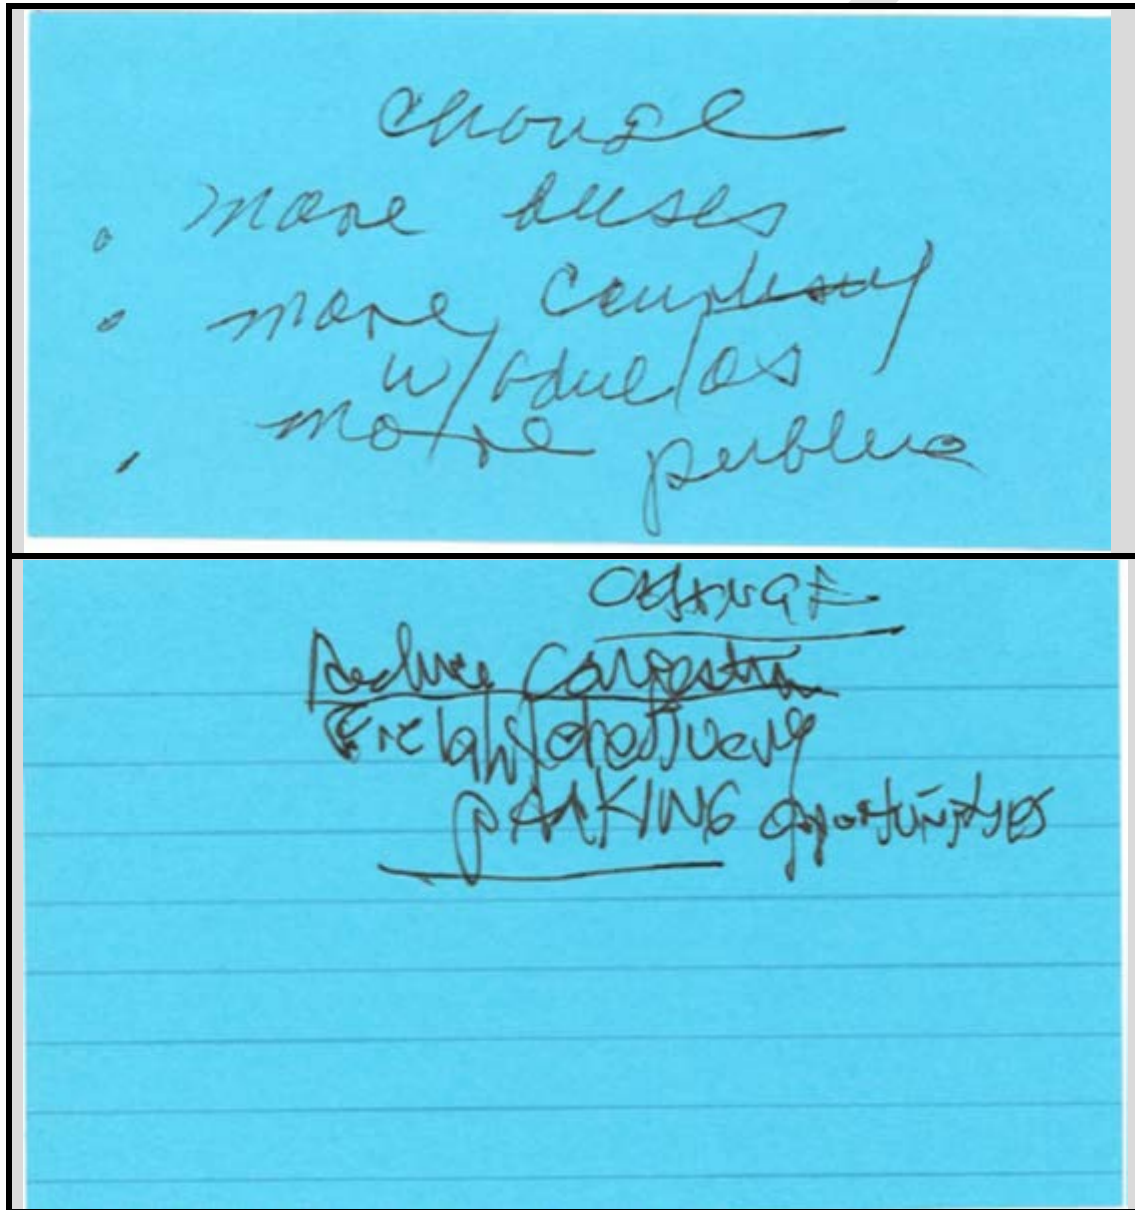 change
more buses
more courtesy
w/
more public
CHANGE
Reduce Congestion
Freight/delivery
PARKING opportunities